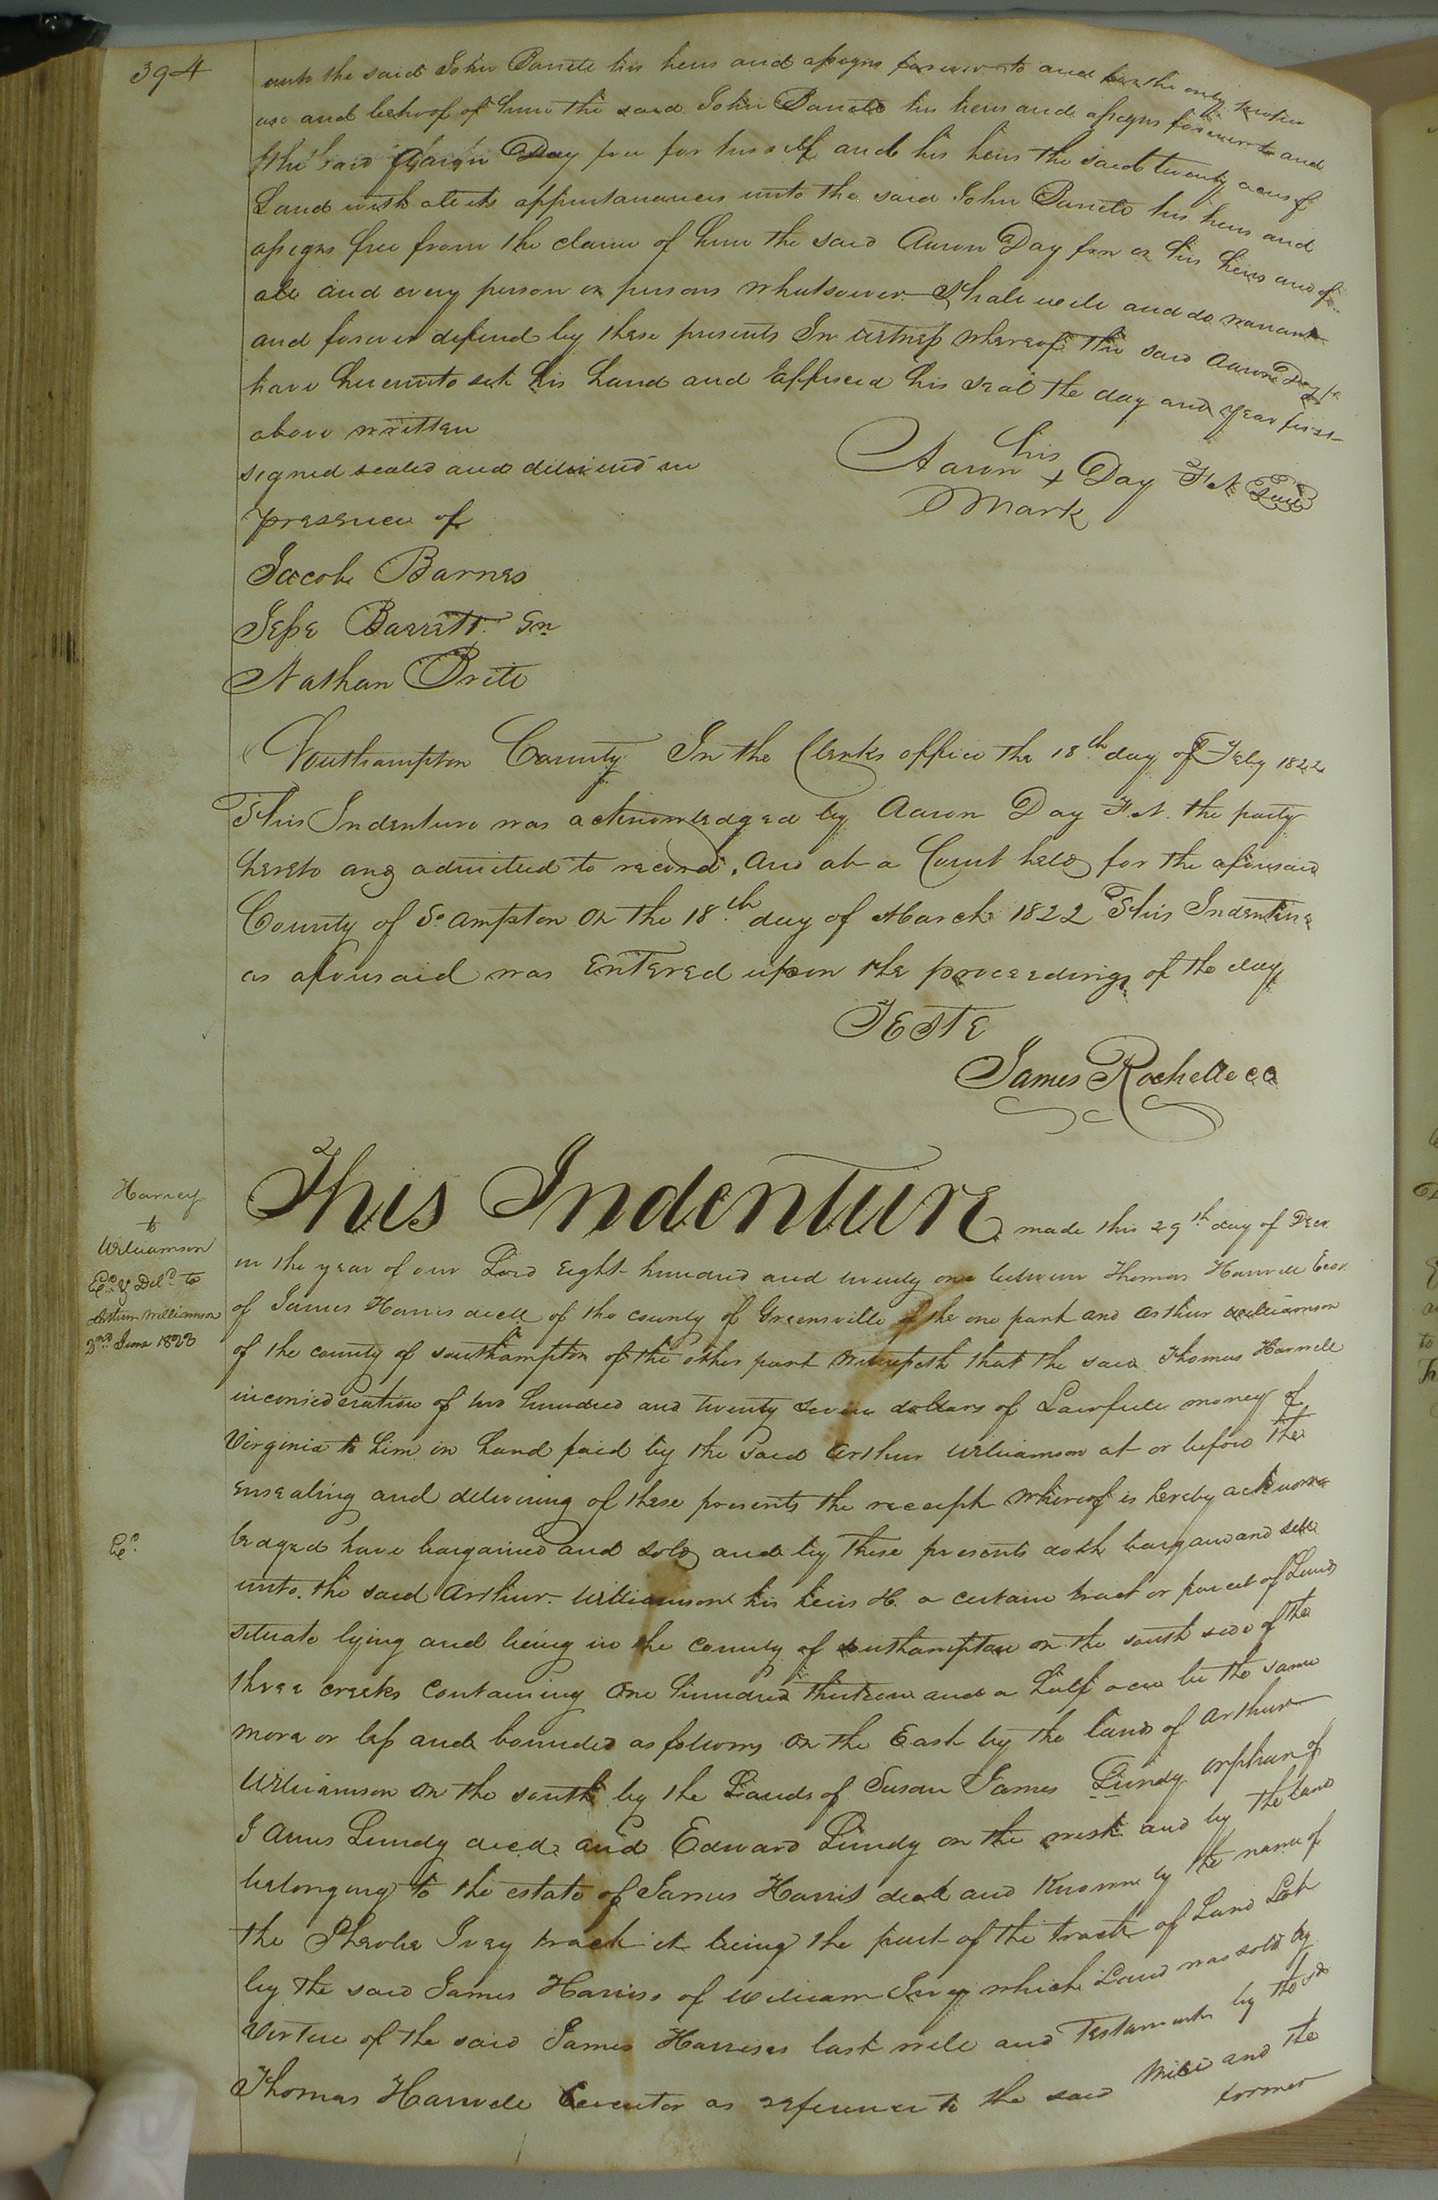 394
unto the said John Barrett his heirs and assigns forever to and for the only proper
use and behoof of him the said John Barrett his heirs and assigns forever to and
the said Aaron Day free for himself and his heirs the said twenty acres of
Land with all its appurtanances unto the said John Barrett his heirs and
assigns free from the claim of him the said Aaron Day free or his heirs and of
all and every person or persons whatsoever Shall will and do warrant
and forever defend by these presents In witness whereof the said Aaron Day
have hereunto set his hand and affixed his seal the day and year first
above written
signed sealed and delivered in
presence of
his
Aaron + Day F N Seal
Mark
Jacob Barnes
Jesse Barrett Sn
Nathan Brite
Southampton County In the Clerks office the 18th day of Feby 1822
This Indenture was acknowledged by Aaron Day F N. the party
hereto and admitted to record, and at a Court held for the aforesaid
County of So ampton on the 18th day of March 1822 This Indenture
as aforesaid was entered upon the proceedings of the day
Teste
James Rochelle cc
Harvey
to
Williamson
Exd & Deld to
Arthur Williamson
2nd June 1823
This Indenture made this 29th day of Decr
in the year of our Lord Eight hundred and twenty one between Thomas Harwell Exor
of James Harris decd of the county of Greensville of the one part and Arthur Williamson
of the county of southampton of the other part witnesseth that the said Thomas Harwell
inconsideration of two hundred and twenty seven dollars of Lawfull money of
Virginia to him in hand paid by the said Arthur Williamson at or before the
ensealing and delivering of these presents the receipt whereof is hereby acknow
Ex
ledged have bargained and sold and by these presents doth bargain and sell
unto the said Arthur Williamson his heirs &c. a certain tract or parcel of Land
situate lying and being in the county of southampton on the south side of the
three creeks containing one hundred thirteen and a half acre be the same
more or less and bounded as follows on the East by the lands of Arthur
Williamson on the south by the Lands of Susan James Lundy orphan of
James Lundy decd and Edward Lundy on the west and by the land
belonging to the estate of James Harris decd and known by the name of
the Phebe Ivey tract it being the part of the tract of Land
by the said James Harriss of William Ivey which Land was sold by
virtue of the said James Harrises last will and Testament by the sd
Thomas Harwell Executor as reference to the said will and the
former